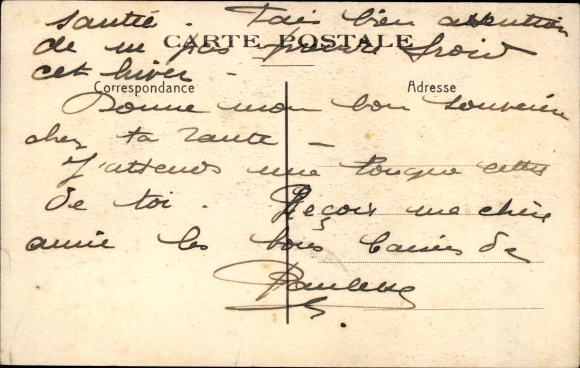 santé. Fais bien attention
de ne pas prendre froid
CARTE POSTALE
cet hiver -
Correspondance
Adresse
Donne mon bon souvenir
chez ta tante -
J'attends une longue lettre
de toi. Reçois ma chère
amie les bons baisers de
Paulette